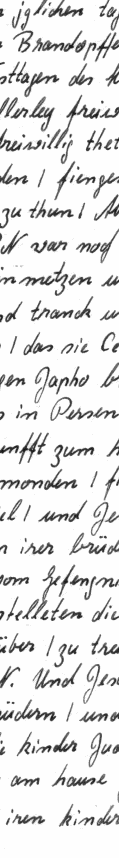 jglichen tag
Brandopffe
sttagen des h
llerley freiw
freiwillig thet
den / fienge
zu thun / Ab
N war noch
inmetzen u
nd tranck u
/ das sie Ce
gen Japho b
s in Persen
unfft zum h
monden / f
el / und Je
n irer brüd
vom Gefengni
stelleten die
über / zu trei
N. Und Jes
rüdern / und
ie kinder Jud
am hause
iren kinder